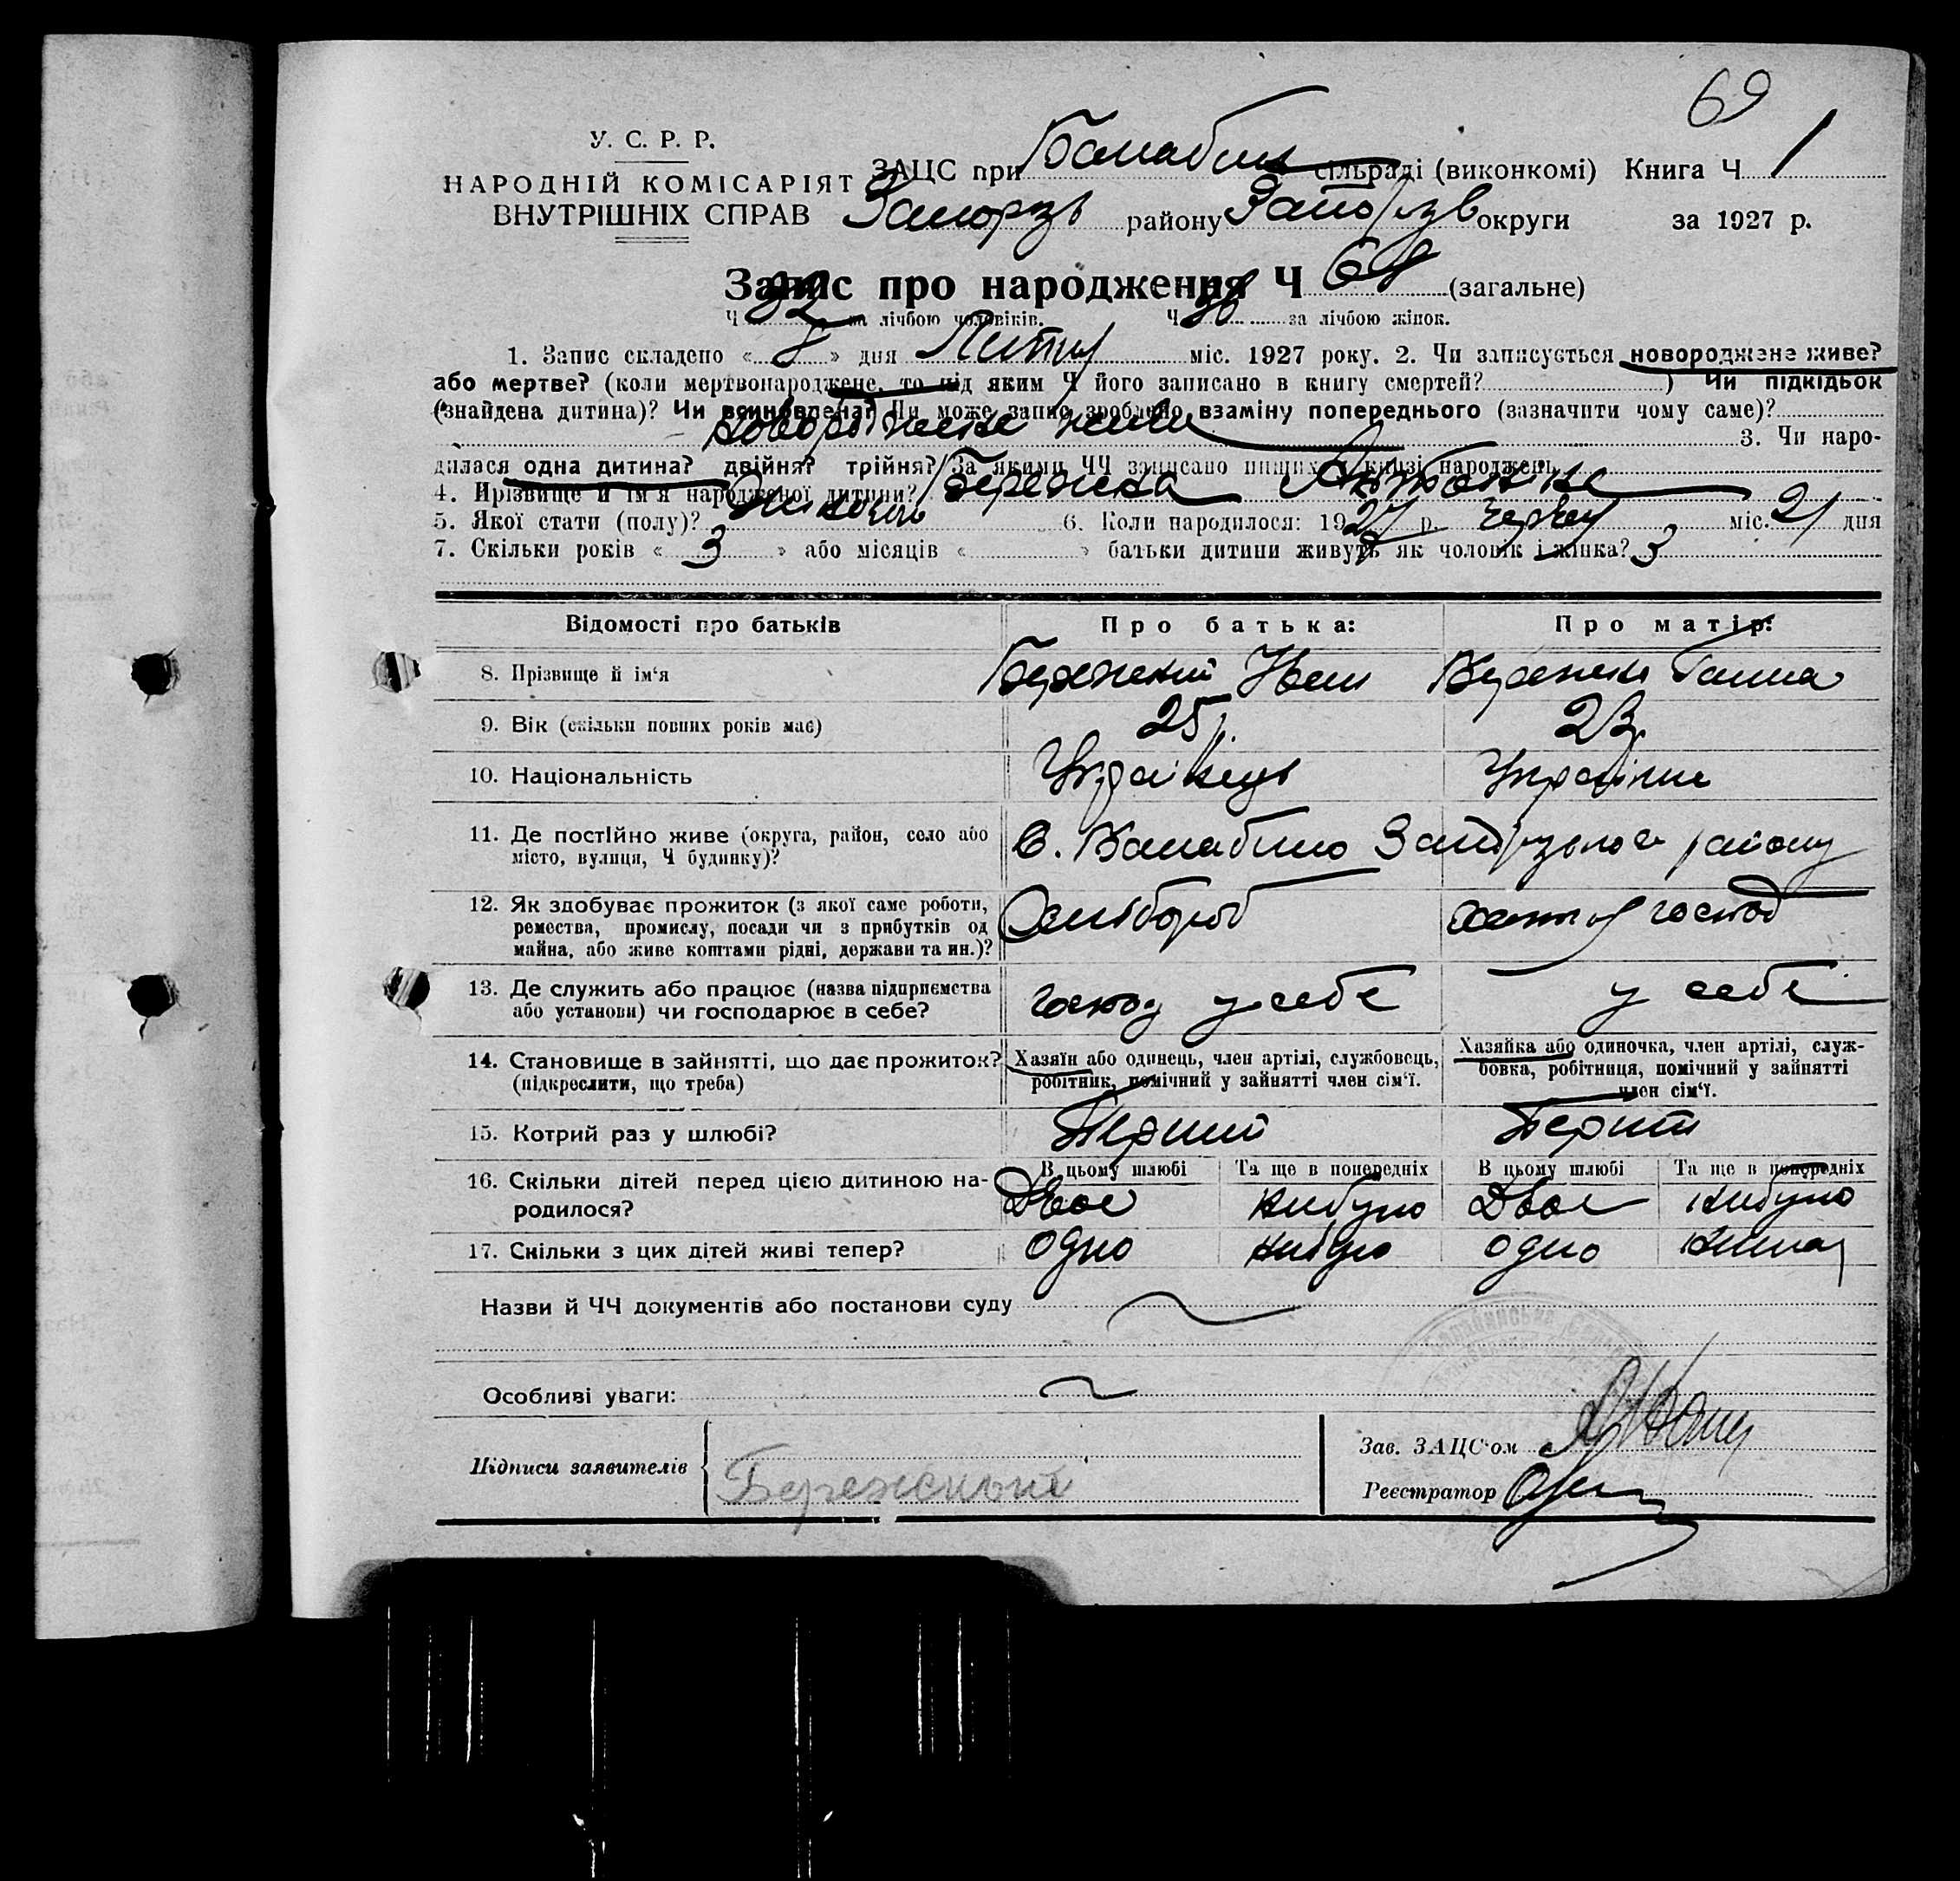 69
У. С. Р. Р.
НАРОДНІЙ КОМІСАРІЯТ
ВНУТРІШНІХ СПРАВ
ЗАЦС при Балабин сільраді (виконкомі) Книга Ч 1
Запорізь району Запорізь округи за 1927 р.
Запис про народження Ч 69 (загальне)
Ч 32 за лічбою чоловіків. Ч за лічбою жінок.
1. Запис складено « » дня Липня міс. 1927 року. 2. Чи записується новороджене живе?
або мертве? (коли мертвонароджене, то під яким Ч його записано в книгу смертей? ) Чи підкідьок
(знайдена дитина)? Чи всиновлена? Чи може запис зроблено взаміну попереднього (зазначити чому саме)?
новороджене живе 3. Чи наро-
дилася одна дитина? двійня? трійня? За якими ЧЧ записано инших в книзі народжень
4. Прізвище й ім'я народженої дитини? Бережна Антоніна
5. Якої стати (полу)? Жіночої 6. Коли народилося: 1927 р. Червня міс. 21 дня
7. Скільки років « 3 » або місяців « » батьки дитини живуть як чоловік і жінка? 3
Відомості про батьків Про батька: Про матір:
8. Прізвище й ім'я Бережний Іван Бережна Ганна
9. Вік (скільки повних років має) 25 р. 23 р.
10. Національність Українець Українка
11. Де постійно живе (округа, район, село або
місто, вулиця, Ч будинку)? С. Балабино Запорізького району
12. Як здобуває прожиток (з якої саме роботи,
ремества, промислу, посади чи з прибутків од
майна, або живе коштами рідні, держави та ин.)? Хлібороб господ
13. Де служить або працює (назва підприємства
або установи) чи господарює в себе? господ у себе у себе
14. Становище в зайнятті, що дає прожиток?
(підкреслити, що треба)
Хазяїн або одинець, член артілі, службовець,
робітник, помічний у зайнятті член сім'ї.
Хазяйка або одиночка, член артілі, служ-
бовка, робітниця, помічний у зайнятті
член сім'ї.
15. Котрий раз у шлюбі? Перший Перший
В цьому шлюбі Та ще в попередніх В цьому шлюбі Та ще в попередніх
16. Скільки дітей перед цією дитиною на-
родилося? Двоє небуло Двоє небуло
17. Скільки з цих дітей живі тепер? одно небуло одно немає
Назви й ЧЧ документів або постанови суду
Особливі уваги:
Підписи заявителів Бережный
Зав. ЗАЦС'ом
Реєстратор